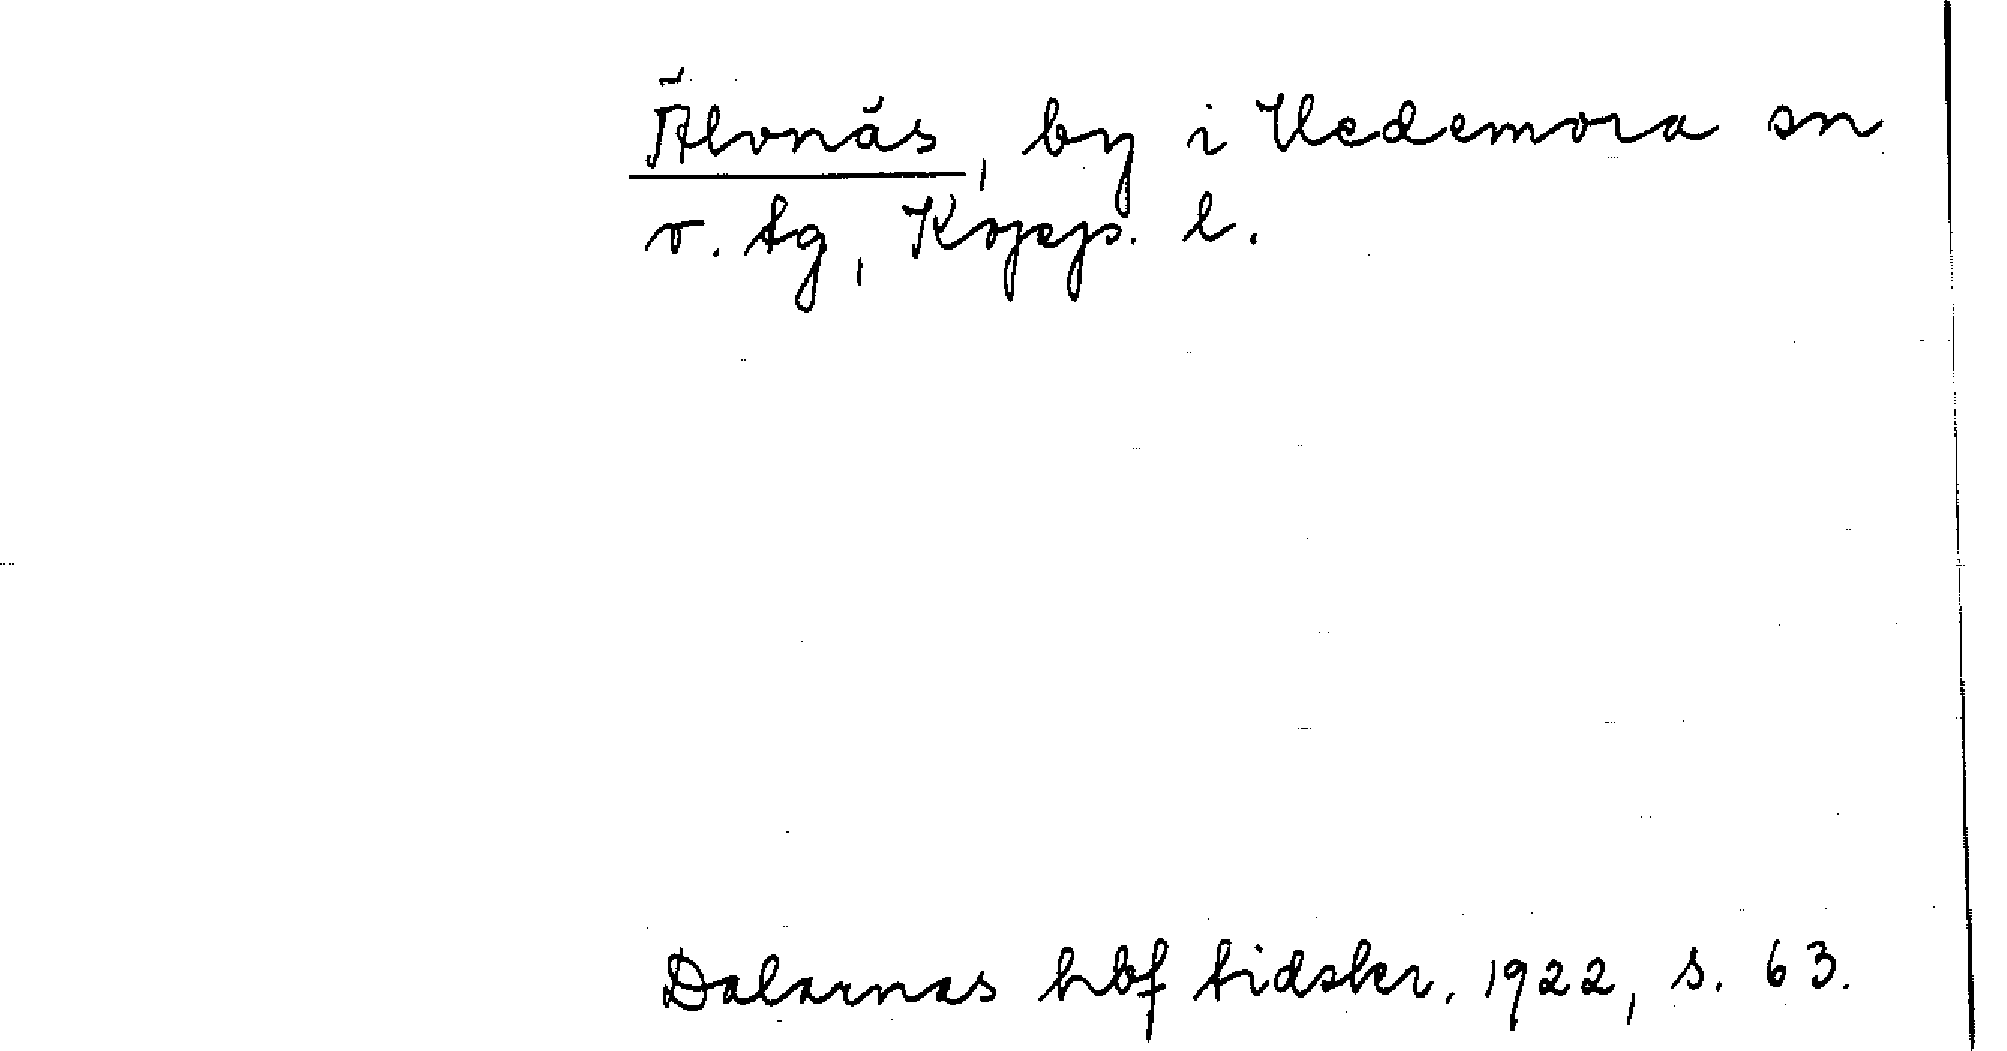 Älvnäs, by i Hedemora sn
o. tg, Kopp. l.
Dalarnas hbf tidskr. 1922, s. 63.